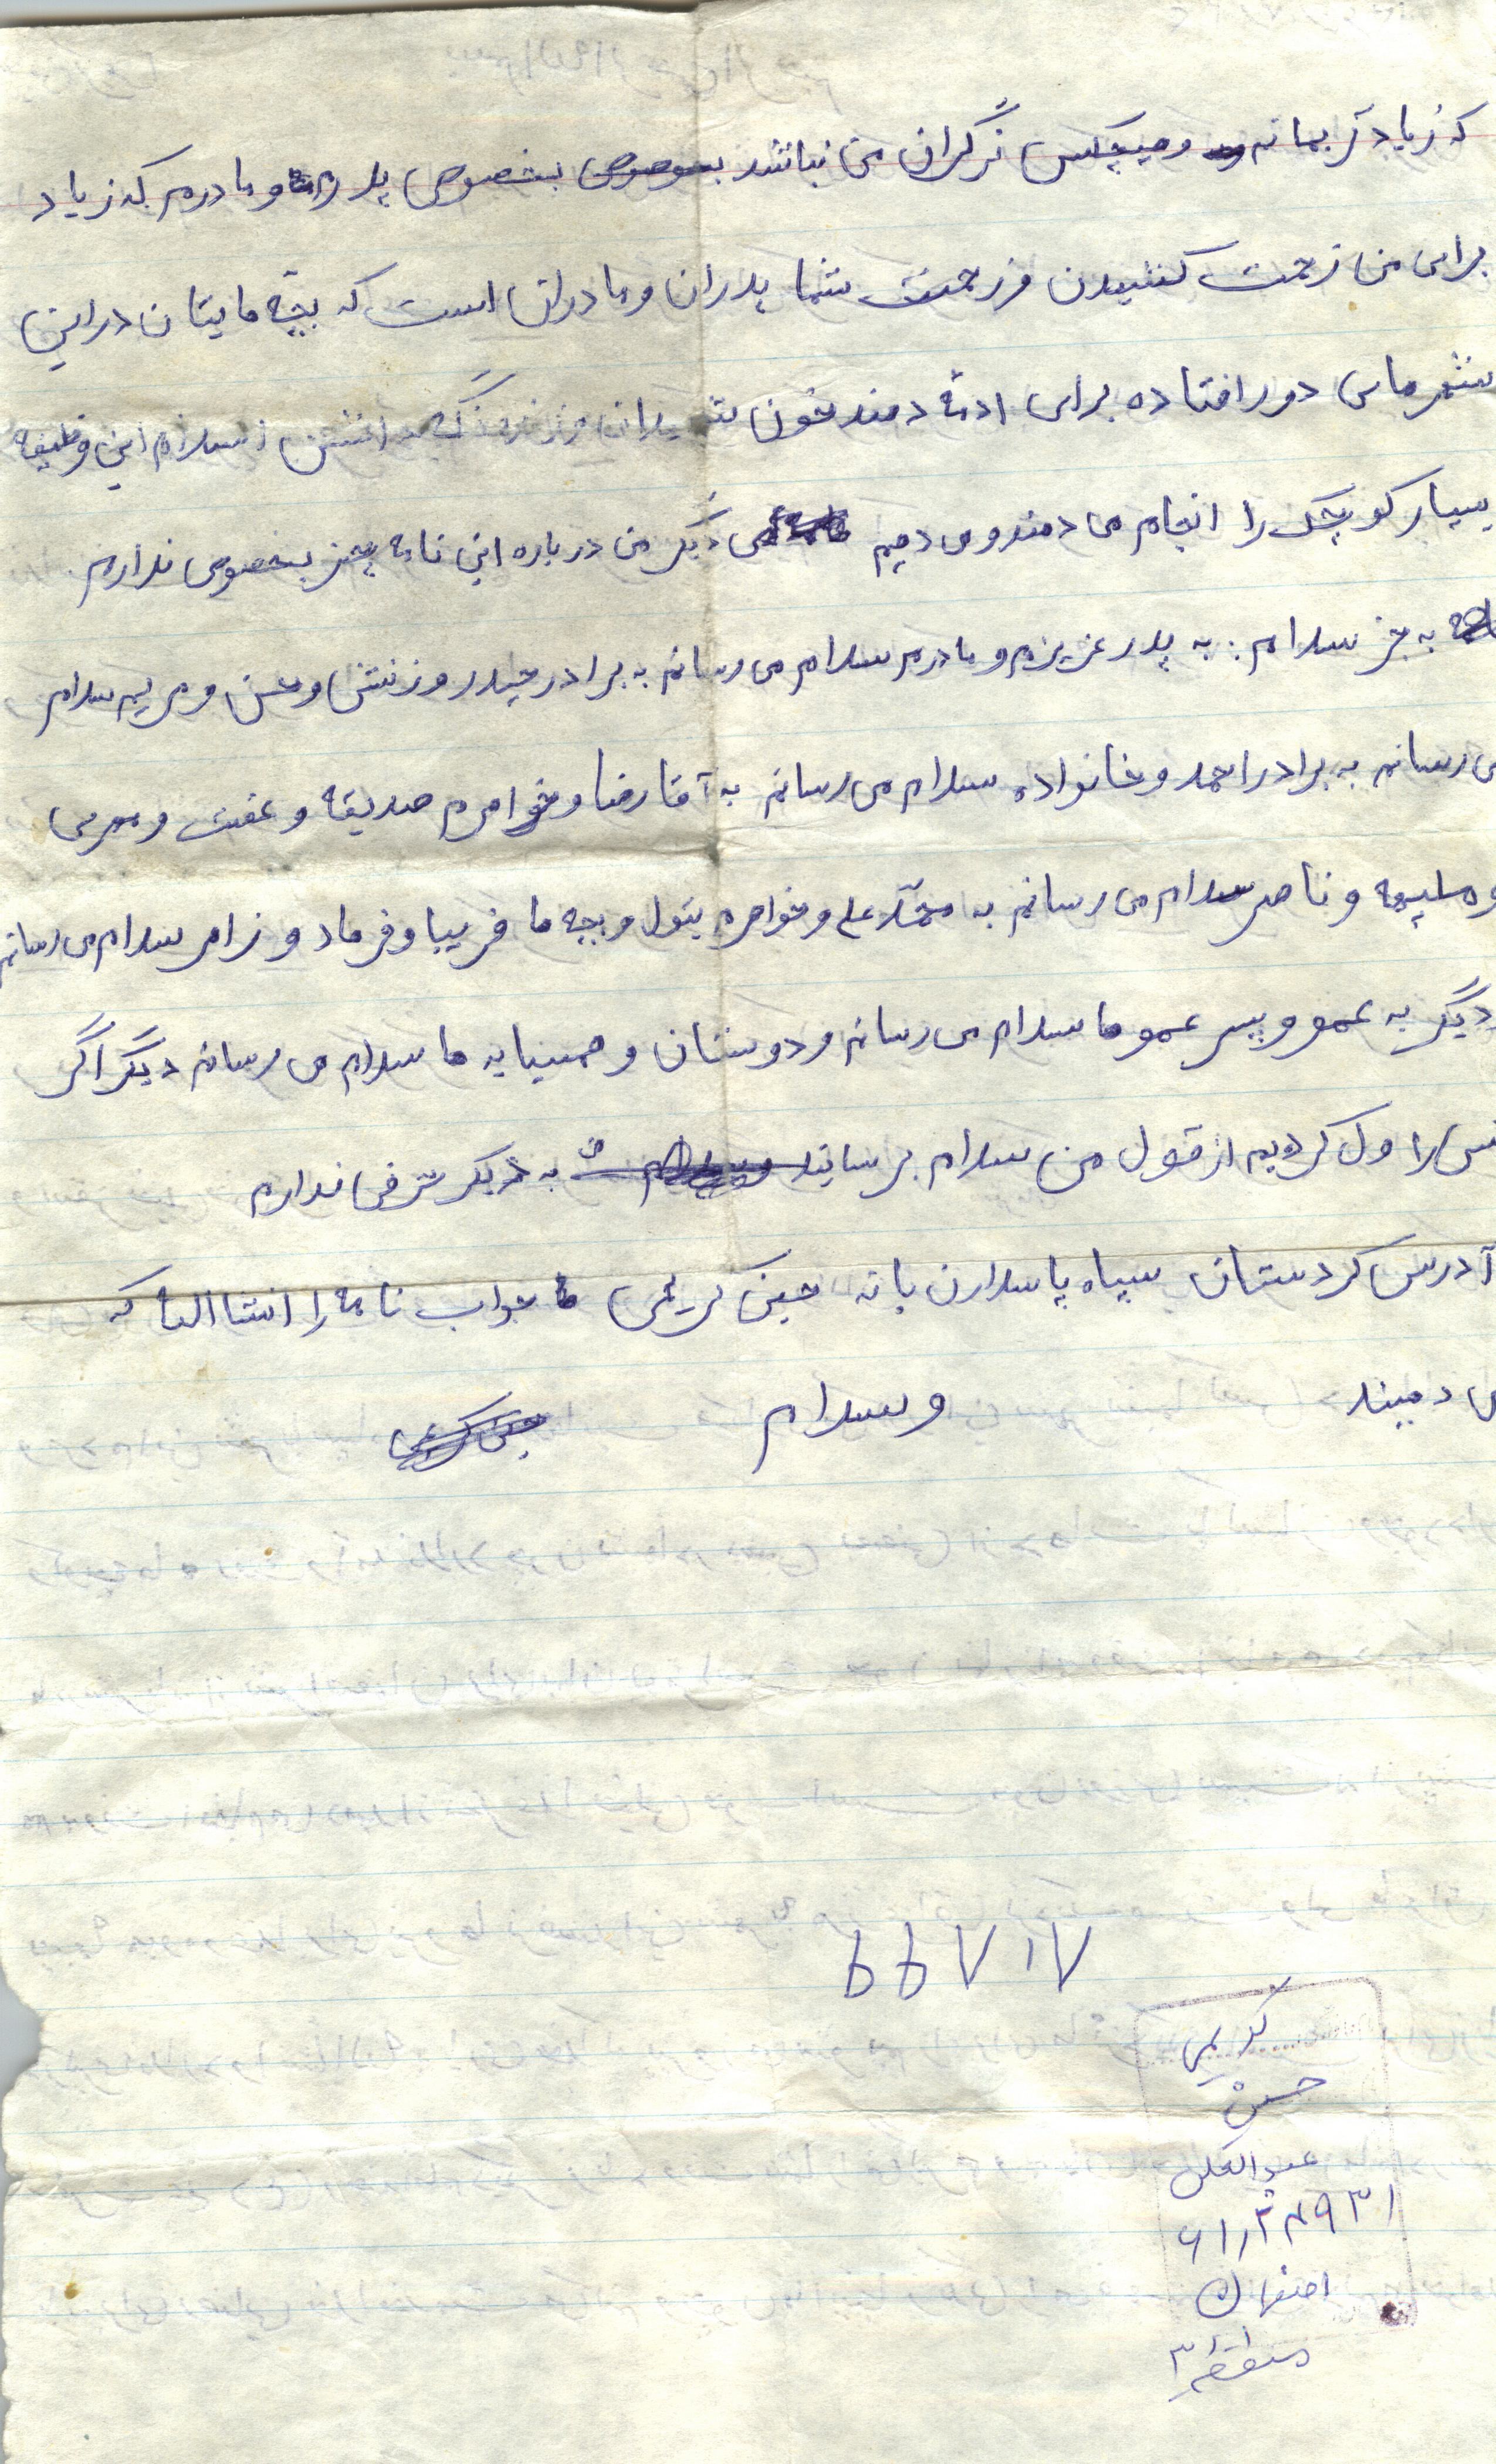 که زیادتر بمانم و هیچکس نگران من نباشد بخصوص پدر و مادرم که زیاد
برای من زحمت کشیدن و زحمت شما پدران و مادران است که بچه هایتان در این
شهرهای دور افتاده برای ادامه دهند خون شهیدان و زنده نگه داشتن اسلام این وظیفه
بسیار کوچک را انجام می دهند و می دهیم دیگر من درباره این نامه چیز بخصوصی ندارم.
به جز سلام: به پدر عزیزم و مادرم سلام می رسانم به برادر حیدر و زنش و حسن و مریم سلام
می رسانم به برادر احمد و خانواده سلام می رسانم به آقا رضا و خواهرم صدیقه و عفت و
و ملیحه و ناصر سلام می رسانم به محمد علی و خواهرم بتول و بچه ها فریبا و فرهاد و زاهر سلام می رسانم
دیگر به عمو و پسر عموها سلام می رسانم و دوستان و همسایه ها سلام می رسانم دیگر اگر
کسی را ول کردیم از قول من سلام برسانید به دیگر حرفی ندارم
آدرس کردستان سپاه پاسدارن بانه حسین کریمی جواب نامه را انشاالله که
می دهیند
وسلام
حسین کریمی
۵۵۷۱۷
کریمی
حسین
عبدالعلی
۶۱,۲۴۹۳۱
اصفهان
منطقه ۲